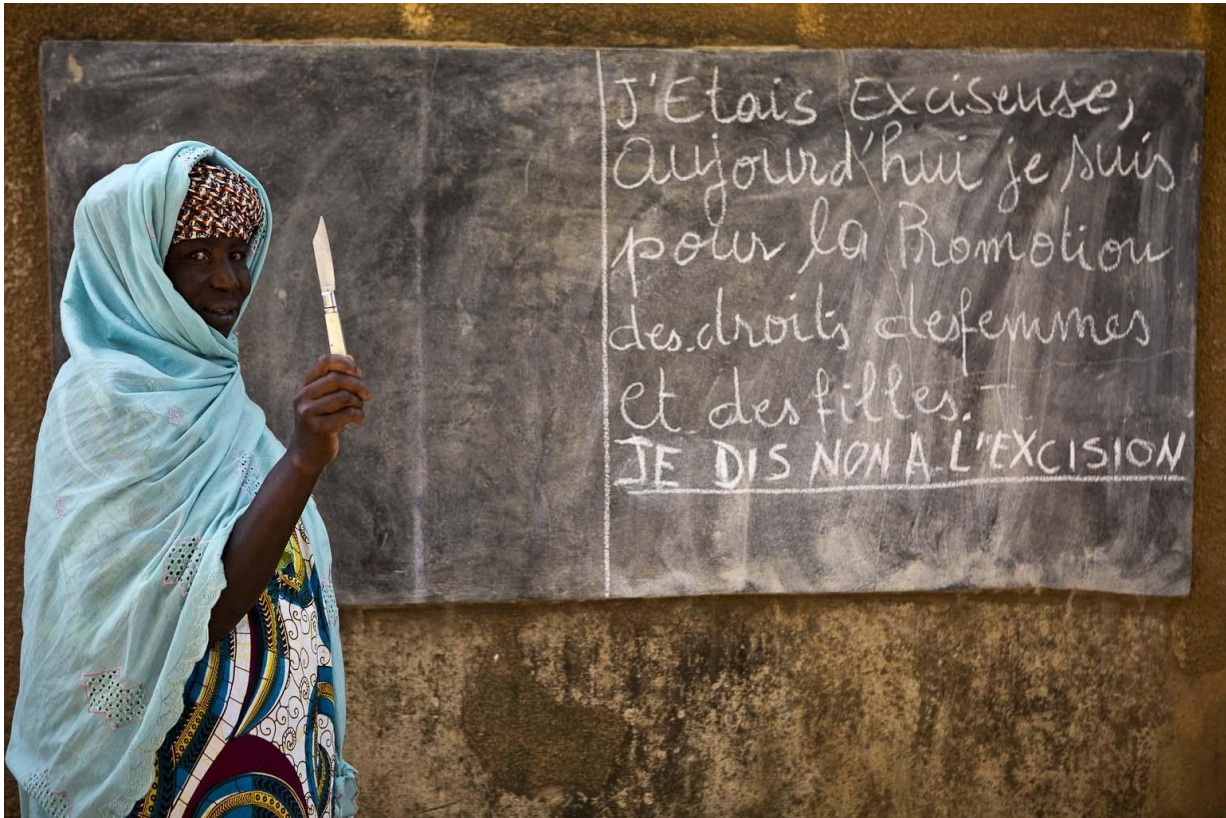 J'Etais Exciseuse,
Aujourd'hui je suis
pour la Promotion
des droits des femmes
et des filles.-
JE DIS NON A L'EXCISION